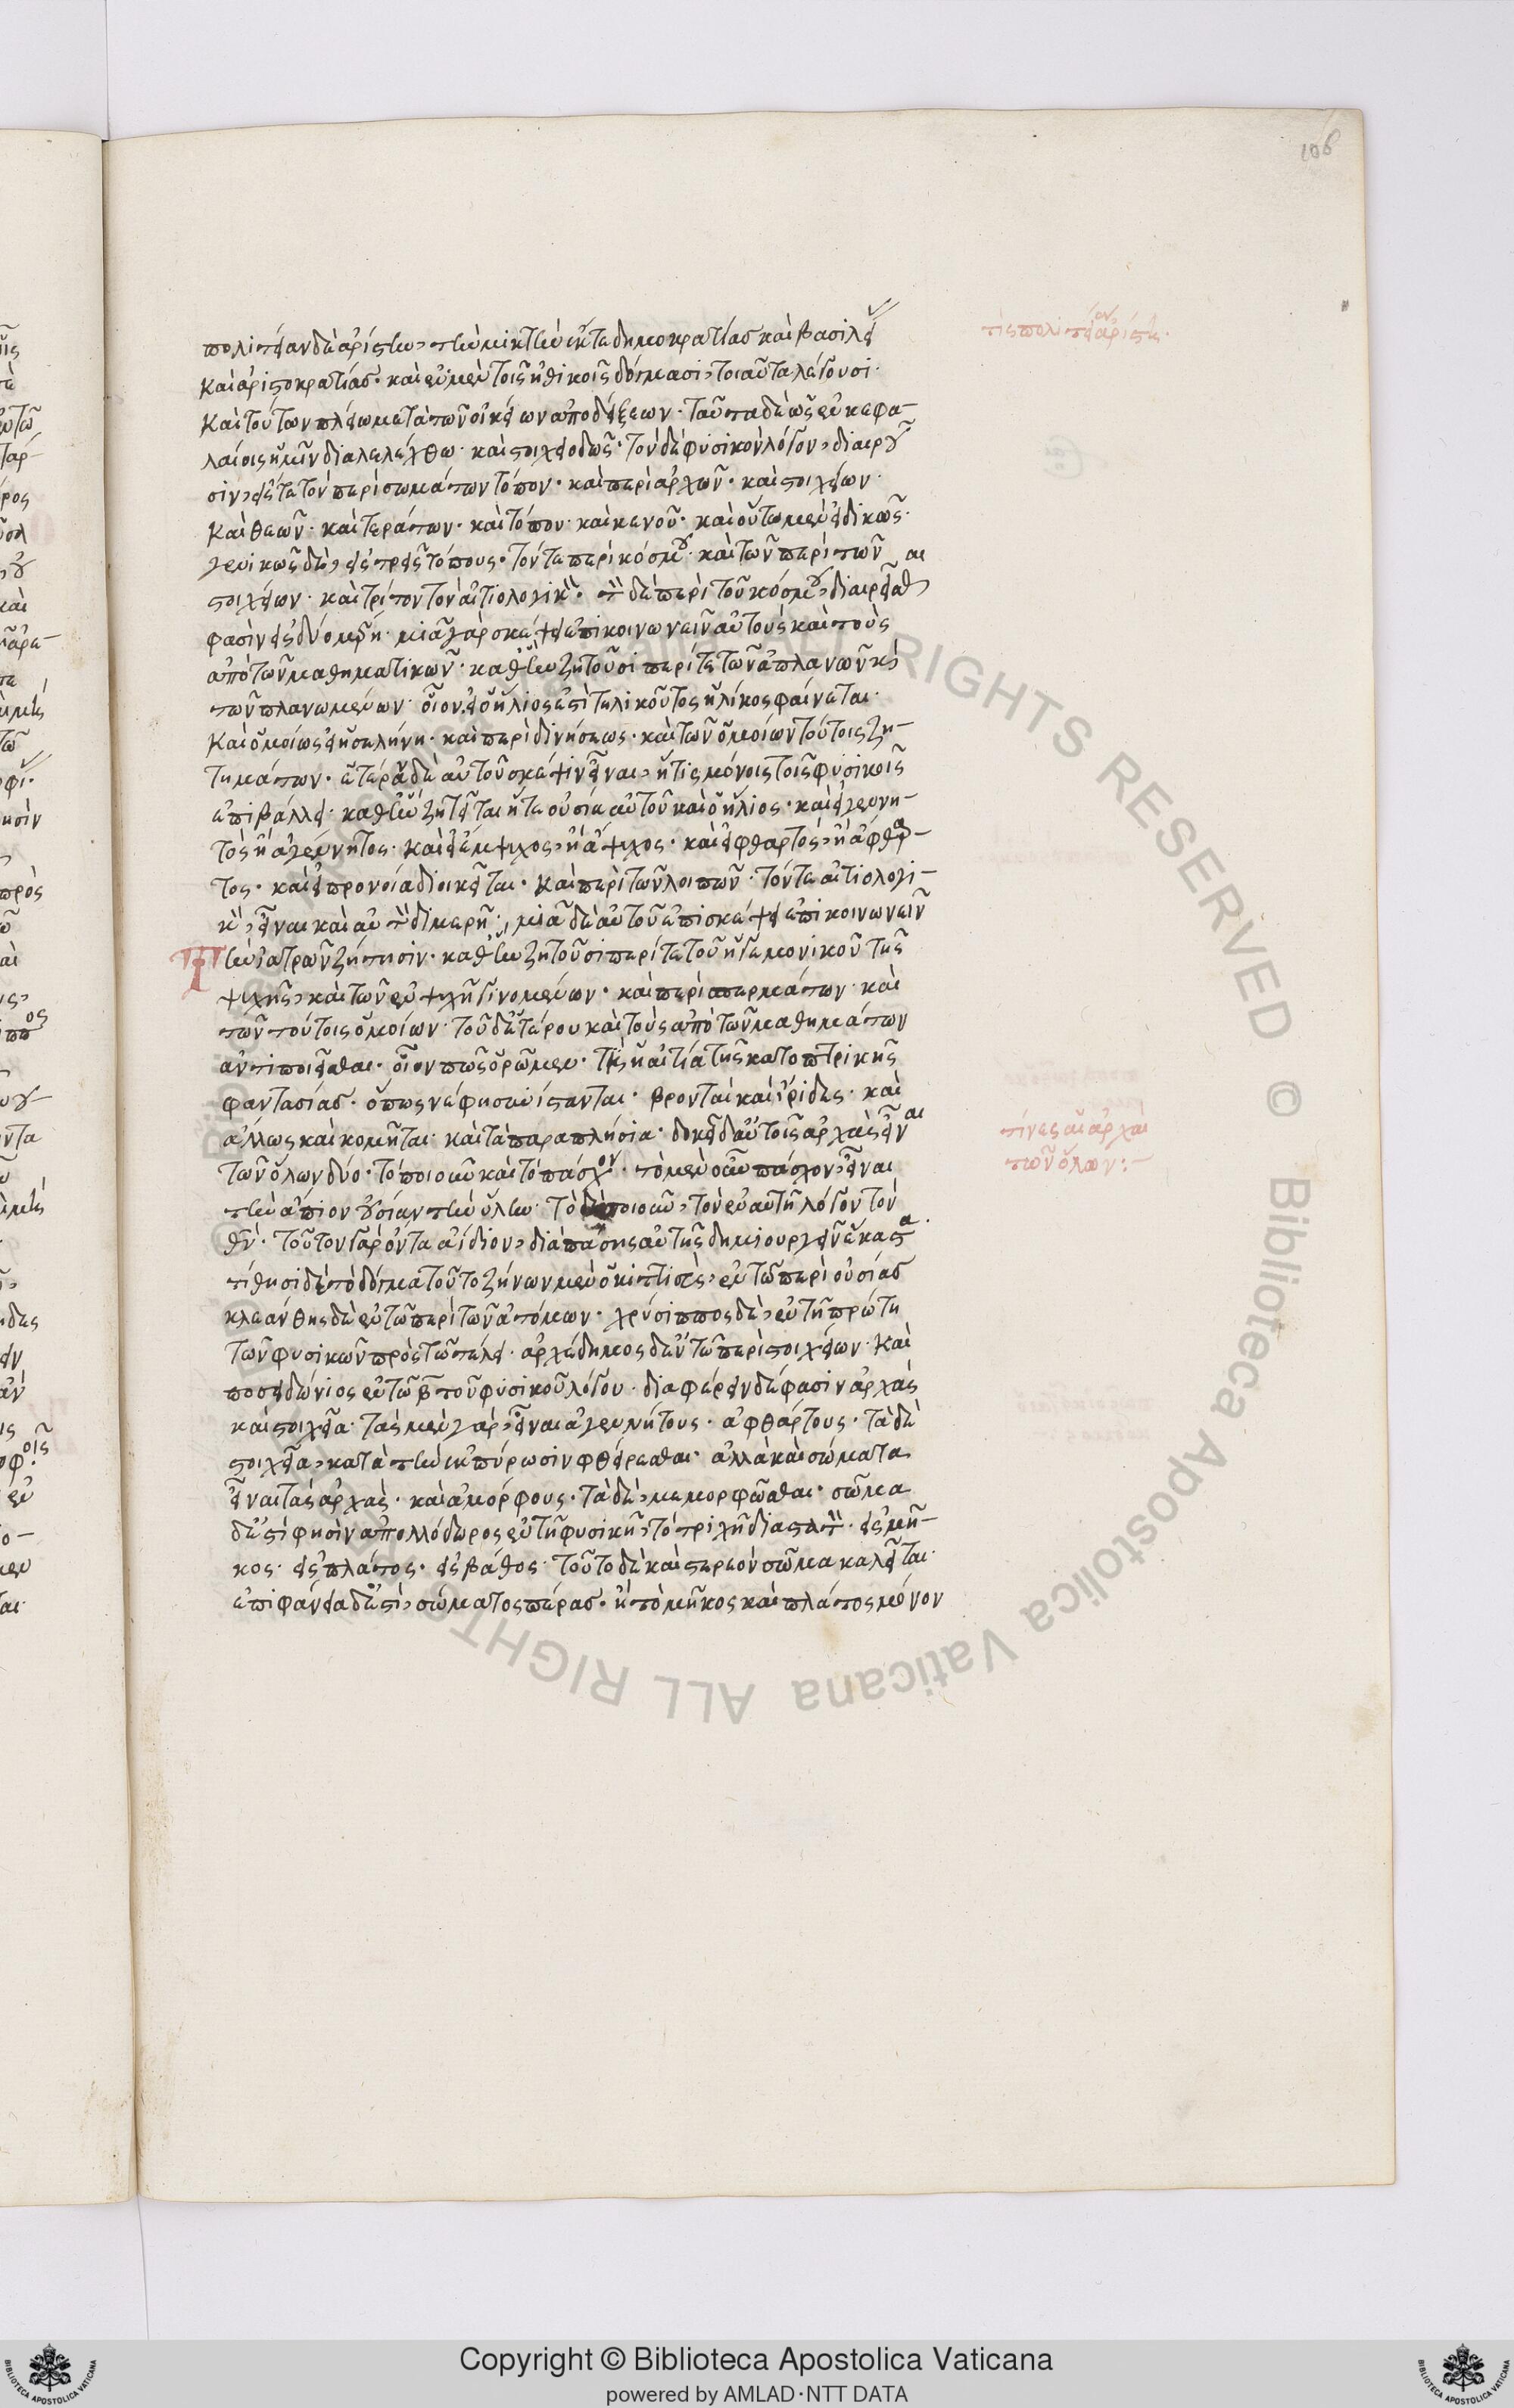 106
πολιτείαν δὲ ἀρίστην, τὴν μικτὴν ἔκ τε δημοκρατίας καὶ βασιλεί
καὶ ἀριστοκρατίας· καὶ ἐν μὲν τοῖς ἠθικοῖς δόγμασι, τοιαῦτα λέγουσι·
καὶ τούτων πλείω μετὰ τῶν οἰκείων ἀποδείξεων· ταῦτα δὲ ὡς ἐν κεφα-
λαίοις ἡμῖν διαλελέχθω· καὶ στοιχειωδῶς· τὸν δὲ φυσικὸν λόγον, διαιροῦ
σιν, εἴς τε τὸν περὶ σωμάτων τόπον· καὶ περὶ ἀρχῶν· καὶ στοιχείων·
καὶ θεῶν· καὶ περάτων· καὶ τόπου· καὶ κενοῦ· καὶ οὕτω μὲν εἰδικῶς·
γενικῶς δὲ, εἰς τρεῖς τόπους· τόν τε περὶ κόσμου· καὶ τῶν περὶ τῶν
στοιχείων· καὶ τρίτον τὸν αἰτιολογικὸν· τὸν δὲ περὶ τοῦ κόσμου, διαιρεῖσθαι
φασὶν εἰς δύο μέρη· μιᾷ γὰρ σκέψει ἐπικοινωνεῖν αὐτοὺς καὶ τοὺς
ἀπὸ τῶν μαθηματικῶν· καθ' ἣν ζητοῦσι περί τε τῶν ἀπλανῶν κὶ
τῶν πλανωμένων· οἷον, εἰ ὁ ἥλιος ἐστὶ τηλικοῦτος ἡλίκος φαίνεται·
καὶ ὁμοίως εἰ ἡ σελήνη· καὶ περὶ δινήσεως· καὶ τῶν ὁμοίων τούτοις ζη-
τημάτων· ἑτέραν δὲ αὐτοῦ σκέψιν εἶναι, ἥτις μόνοις τοῖς φυσικοῖς
ἐπιβάλλει· καθ' ἣν ζητεῖται ἥ τε οὐσία αὐτοῦ καὶ ὁ ἥλιος· καὶ εἰ γεννη-
τὸς ἢ ἀγέννητος· καὶ εἰ ἔμψυχος, ἢ ἄψυχος· καὶ εἰ φθαρτός, ἢ ἄφθαρ-
τος· καὶ εἰ προνοίᾳ διοικεῖται· καὶ περὶ τῶν λοιπῶν· τόν τε αἰτιολογι-
κὸν, εἶναι καὶ αὐτὸν διμερῆ·, μιᾷ δὲ αὐτοῦ ἐπισκέψει ἐπικοινωνεῖν
τὴν ἰατρῶν ζήτησιν· καθ' ἣν ζητοῦσι περί τε τοῦ ἡγεμονικοῦ τῆς
ψυχῆς, καὶ τῶν ἐν ψυχῇ γινομένων· καὶ περὶ σπερμάτων· καὶ
τῶν τούτοις ὁμοίων· τοῦ δ' ἑτέρου καὶ τοὺς ἀπὸ τῶν μαθημάτων
ἀντιποιεῖσθαι· οἷον πῶς ὁρῶμεν· τίς ἡ αἰτία τῆς κατοπτρικῆς
φαντασίας· ὅπως νέφη συνίστανται· βρονταὶ καὶ ἴριδες· καὶ
ἅλλως καὶ κομῆται· καὶ τὰ παραπλήσια· δοκεῖ δ' αὐτοῖς ἀρχὰς εἶναι
τῶν ὅλων δύο· τὸ ποιοῦν καὶ τὸ πάσχον· τὸ μὲν οὖν πάσχον, εἶναι
τὴν ἄποιον οὐσίαν τὴν ὕλην· τὸ δὲ ποιοῦν, τὸν ἐν αὐτῇ λόγον τὸν
θεόν· τοῦτον γὰρ ὄντα ἀίδιον, διὰ πάσης αὐτῆς δημιουργεῖν ἕκαστα·
τίθησι δὲ τὸ δόγμα τοῦτο ζήνων μὲν ὁ κιτιεὺς, ἐν τῷ περὶ οὐσίας
κλεάνθης δὲ ἐν τῷ περὶ τῶν ἀτόμων· χρύσιππος δὲ, ἐν τῇ πρώτῃ
τῶν φυσικῶν πρὸς τῷ τέλει· ἀρχέδημος δ' ἐν τῷ περὶ στοιχείων· καὶ
ποσειδώνιος ἐν τῷ β τοῦ φυσικοῦ λόγου· διαφέρειν δέ φασιν ἀρχὰς
καὶ στοιχεῖα· τὰς μὲν γὰρ, εἶναι ἀγεννήτους· ἀφθάρτους· τὰ δὲ
στοιχεῖα, κατὰ τὴν ἐκπύρωσιν φθείρεσθαι· ἀλλὰ καὶ σώματα
εἶναι τὰς ἀρχὰς· καὶ ἀμόρφους· τὰ δὲ, μεμορφῶσθαι· σῶμα
δ' ἐστί φησιν ἀπολλόδωρος ἐν τῇ φυσικῇ, τὸ τριχῇ διαστατόν· εἰς μῆ-
κος· εἰς πλάτος· εἰς βάθος· τοῦτο δὲ καὶ στερεὸν σῶμα καλεῖται·
ἐπιφάνεια δ' ἐστὶ, σώματος πέρας· ἢ τὸ μῆκος καὶ πλάτος μόνον
τίς πολιτεία ἀρίστη·
τίνες αἱ ἀρχαὶ
τῶν ὅλων:-
Copyright © Biblioteca Apostolica Vaticana
powered by AMLAD·NTT DATA